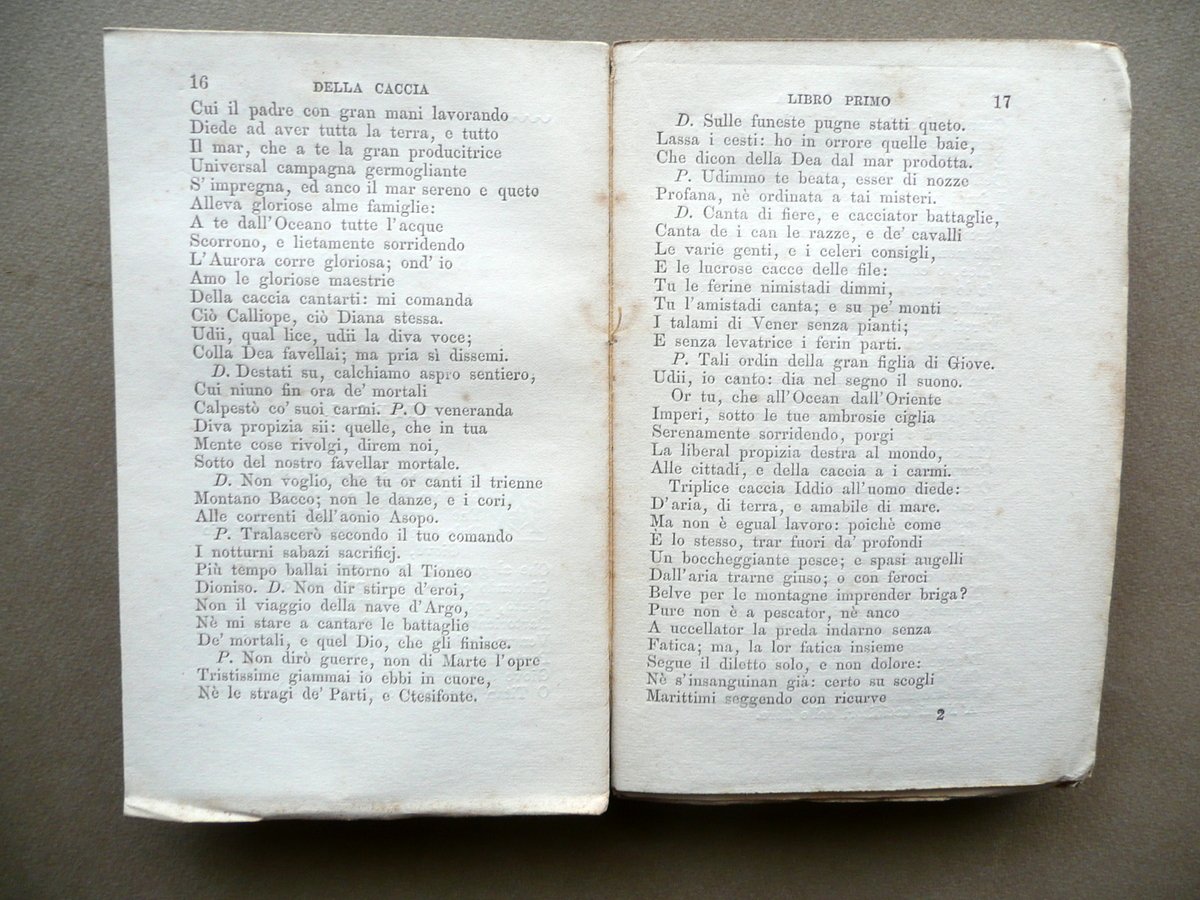 16
DELLA CACCIA
Cui il padre con gran mani lavorando
Diede ad aver tutta la terra, e tutto
Il mar, che a te la gran producitrice
Universal campagna germogliante
S' impregna, ed anco il mar sereno e queto
Alleva gloriose alme famiglie:
A te dall'Oceano tutte l'acque
Scorrono, e lietamente sorridendo
L'Aurora corre gloriosa; ond' io
Amo le gloriose maestrie
Della caccia cantarti: mi comanda
Ciò Calliope, ciò Diana stessa.
Udii, qual lice, udii la diva voce;
Colla Dea favellai; ma pria sì dissemi.
D. Destati su, calchiamo aspro sentiero,
Cui niuno fin ora de' mortali
Calpestò co' suoi carmi. P. O veneranda
Diva propizia sii: quelle, che in tua
Mente cose rivolgi, direm noi,
Sotto del nostro favellar mortale.
D. Non voglio, che tu or canti il trienne
Montano Bacco; non le danze, e i cori,
Alle correnti dell'aonio Asopo.
P. Tralascerò secondo il tuo comando
I notturni sabazi sacrificj.
Più tempo ballai intorno al Tioneo
Dioniso. D. Non dir stirpe d'eroi,
Non il viaggio della nave d'Argo,
Nè mi stare a cantare le battaglie
De' mortali, e quel Dio, che gli finisce.
P. Non dirò guerre, non di Marte l'opre
Tristissime giammai io ebbi in cuore,
Nè le stragi de' Parti, e Ctesifonte.
LIBRO PRIMO
17
D. Sulle funeste pugne statti queto.
Lassa i cesti: ho in orrore quelle baie,
Che dicon della Dea dal mar prodotta.
P. Udimmo te beata, esser di nozze
Profana, nè ordinata a tai misteri.
D. Canta di fiere, e cacciator battaglie,
Canta de i can le razze, e de' cavalli
Le varie genti, e i celeri consigli,
E le lucrose cacce delle file:
Tu le ferine nimistadi dimmi,
Tu l'amistadi canta; e su pe' monti
I talami di Vener senza pianti;
E senza levatrice i ferin parti.
P. Tali ordin della gran figlia di Giove.
Udii, io canto: dia nel segno il suono.
Or tu, che all'Ocean dall'Oriente
Imperi, sotto le tue ambrosie ciglia
Serenamente sorridendo, porgi
La liberal propizia destra al mondo,
Alle cittadi, e della caccia a i carmi.
Triplice caccia Iddio all'uomo diede:
D'aria, di terra, e amabile di mare.
Ma non è egual lavoro: poichè come
È lo stesso, trar fuori da' profondi
Un boccheggiante pesce; e spasi augelli
Dall'aria trarne giuso; o con feroci
Belve per le montagne imprender briga?
Pure non è a pescator, nè anco
A uccellator la preda indarno senza
Fatica; ma, la lor fatica insieme
Segue il diletto solo, e non dolore:
Nè s'insanguinan già: certo su scogli
Marittimi seggendo con ricurve
2